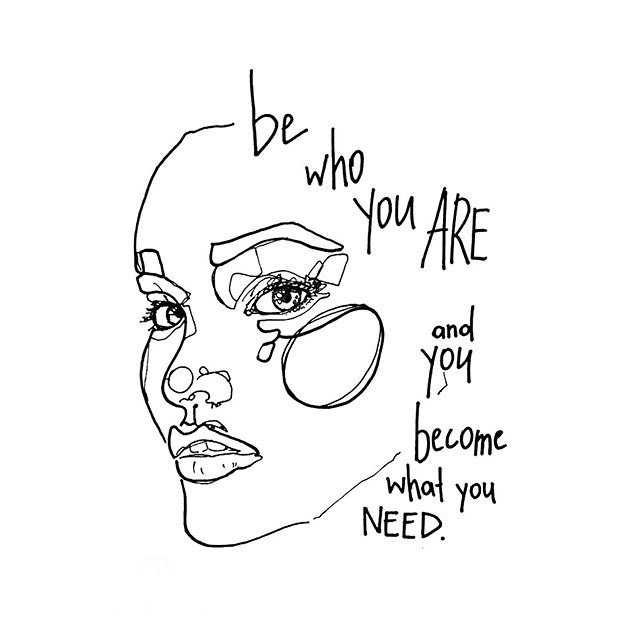 be
who
you ARE
and
you
become
what you
NEED.